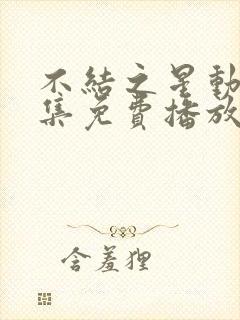 不結之星動
集免費播放
含羞狸